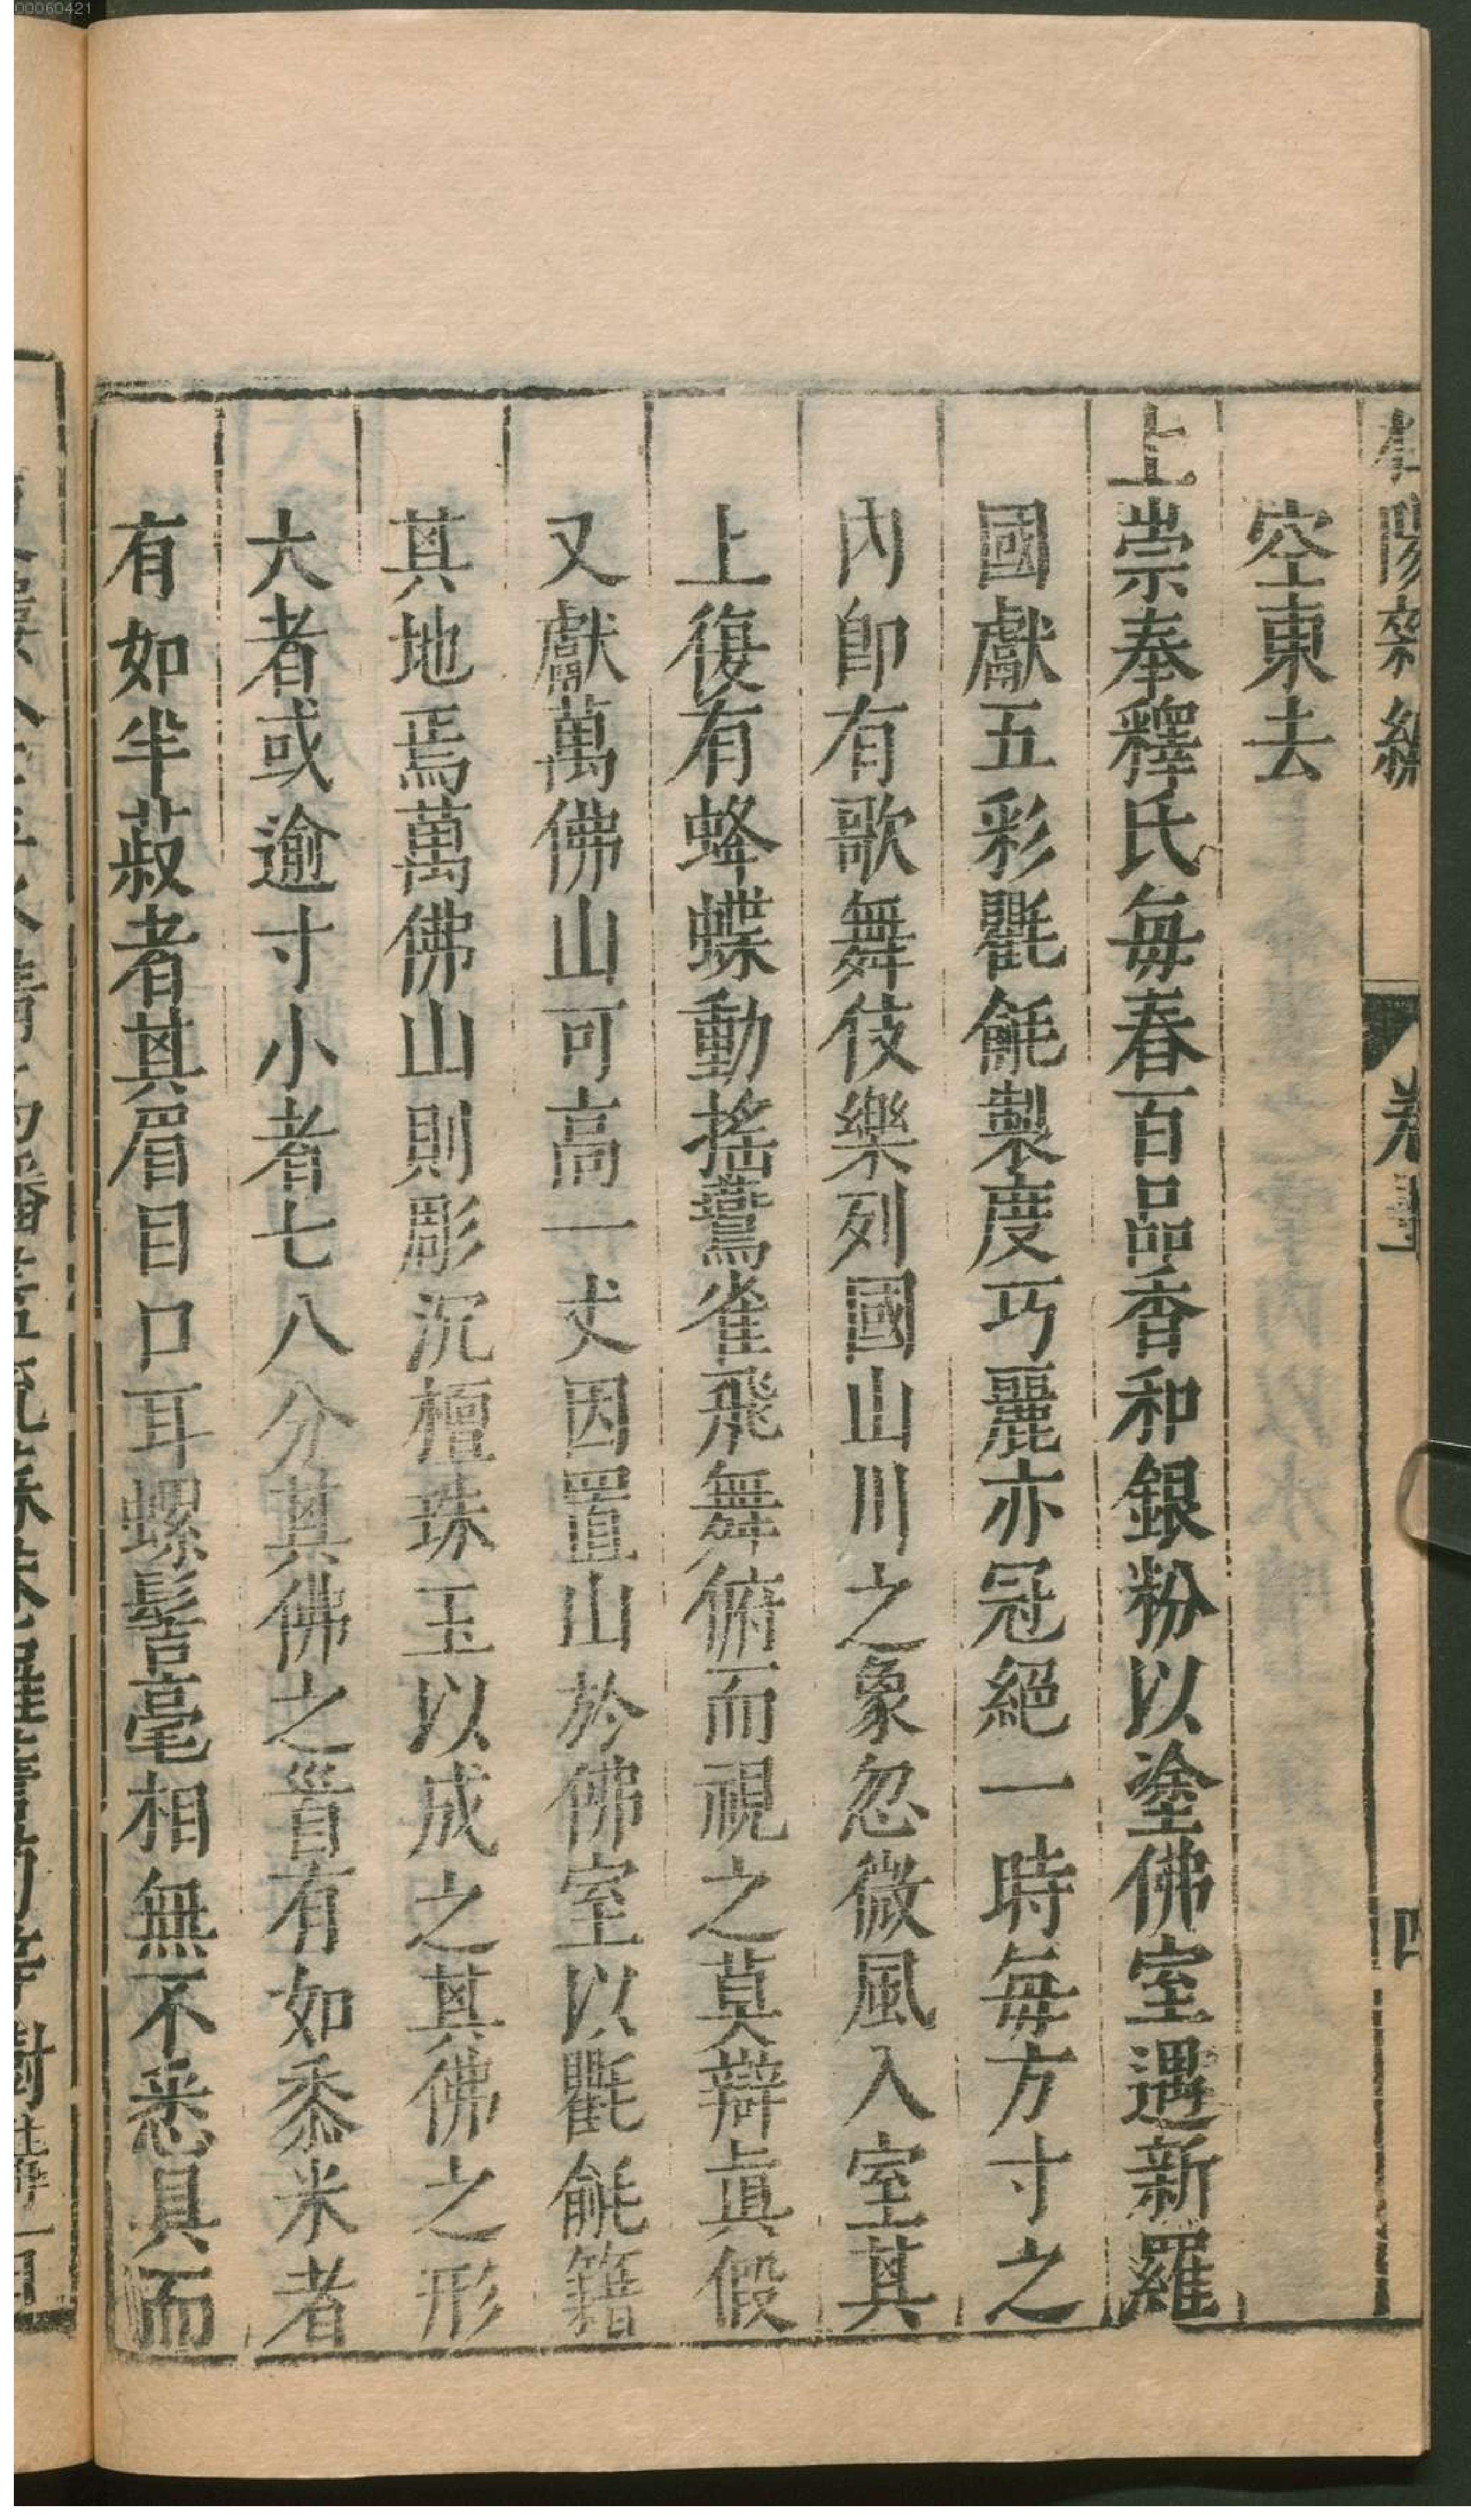 00060421
空東去
上崇奉釋氏每春百品香和銀粉以塗佛室遇新羅
國獻五彩氍毹製度巧麗亦冠絕一時每方寸之
內即有歌舞伎樂列國山川之象忽微風入室其
上復有蜂蝶動搖鷰雀飛舞俯而視之莫辯眞假
又獻萬佛山可高一丈因置山於佛室以氍毹籍
其地焉萬佛山則彫沉檀珠玉以成之其佛之形
大者或逾寸小者七八分其佛之首有如黍米者
有如半菽者其眉目口耳螺髻毫相無不悉具而